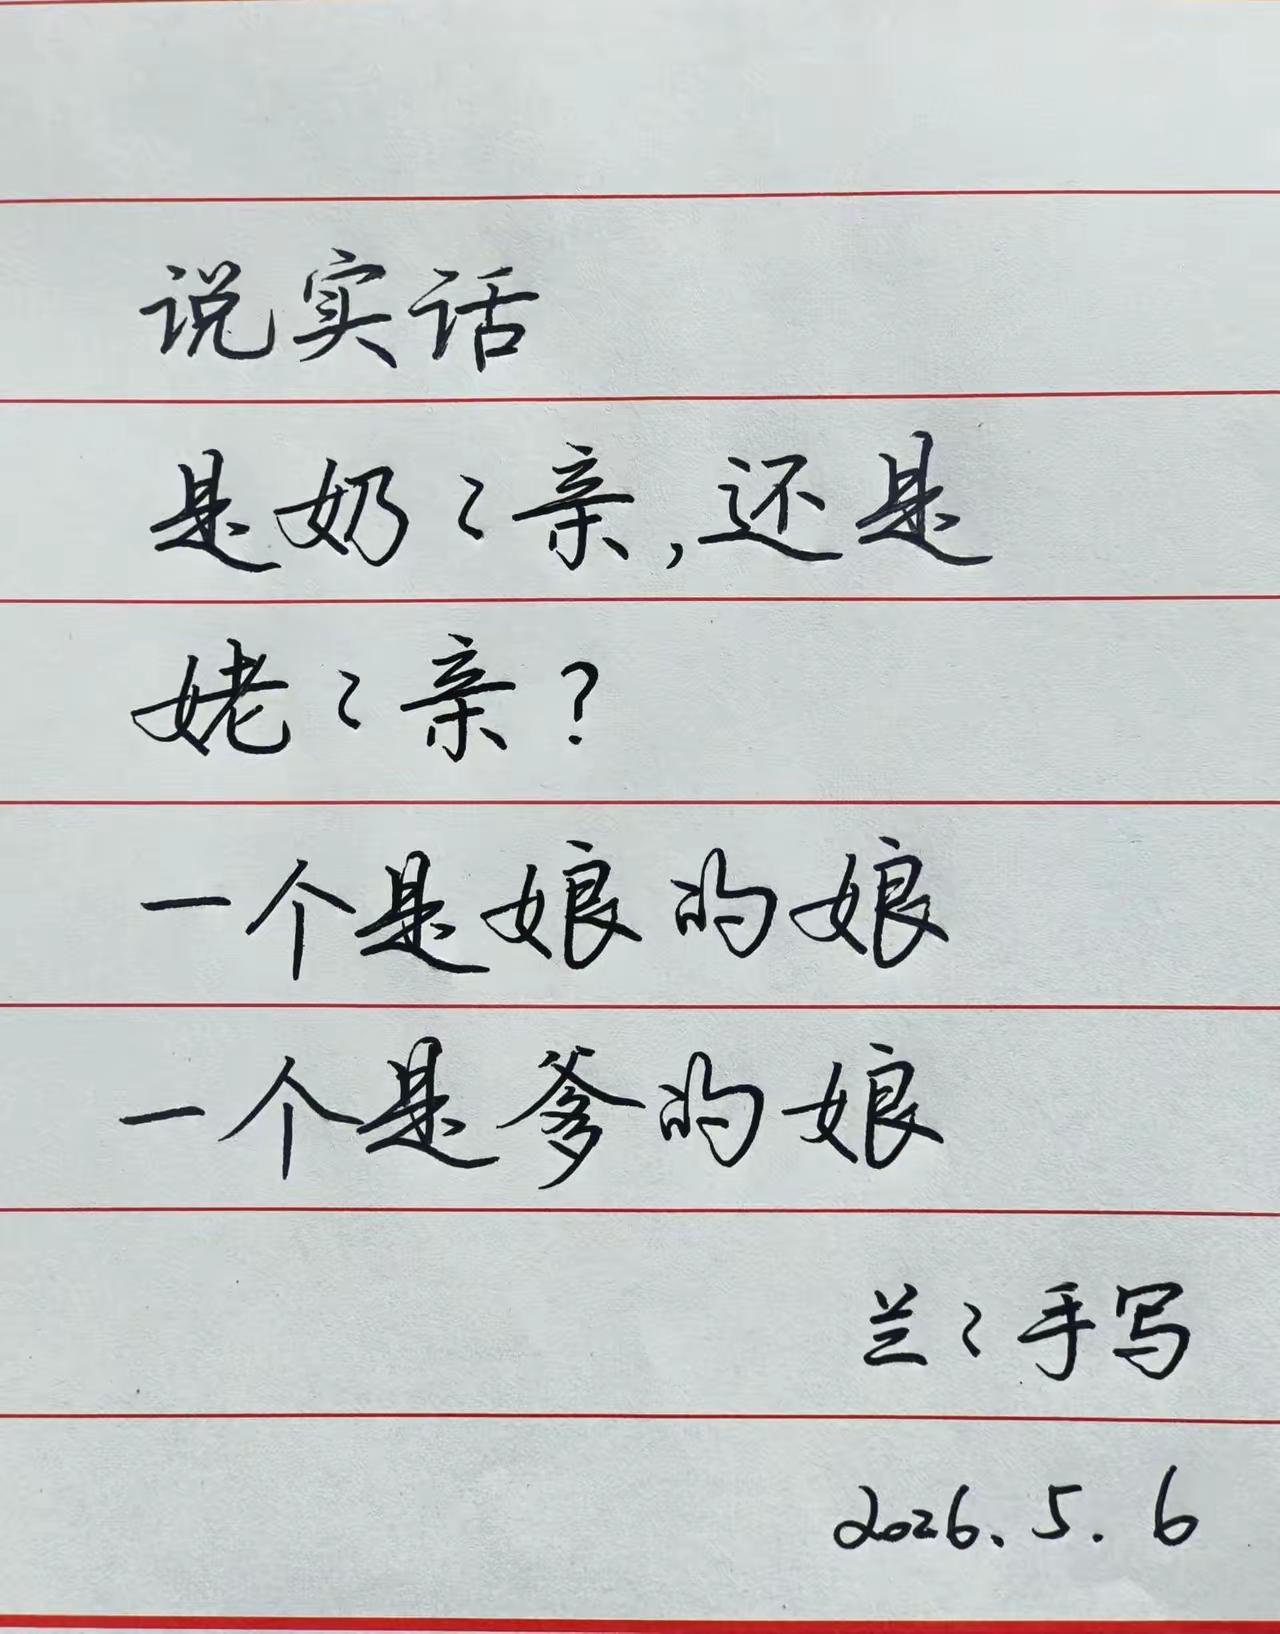 说实话
是奶〻亲,还是
姥〻亲?
一个是娘的娘
一个是爹的娘
兰〻手写
2026.5.6